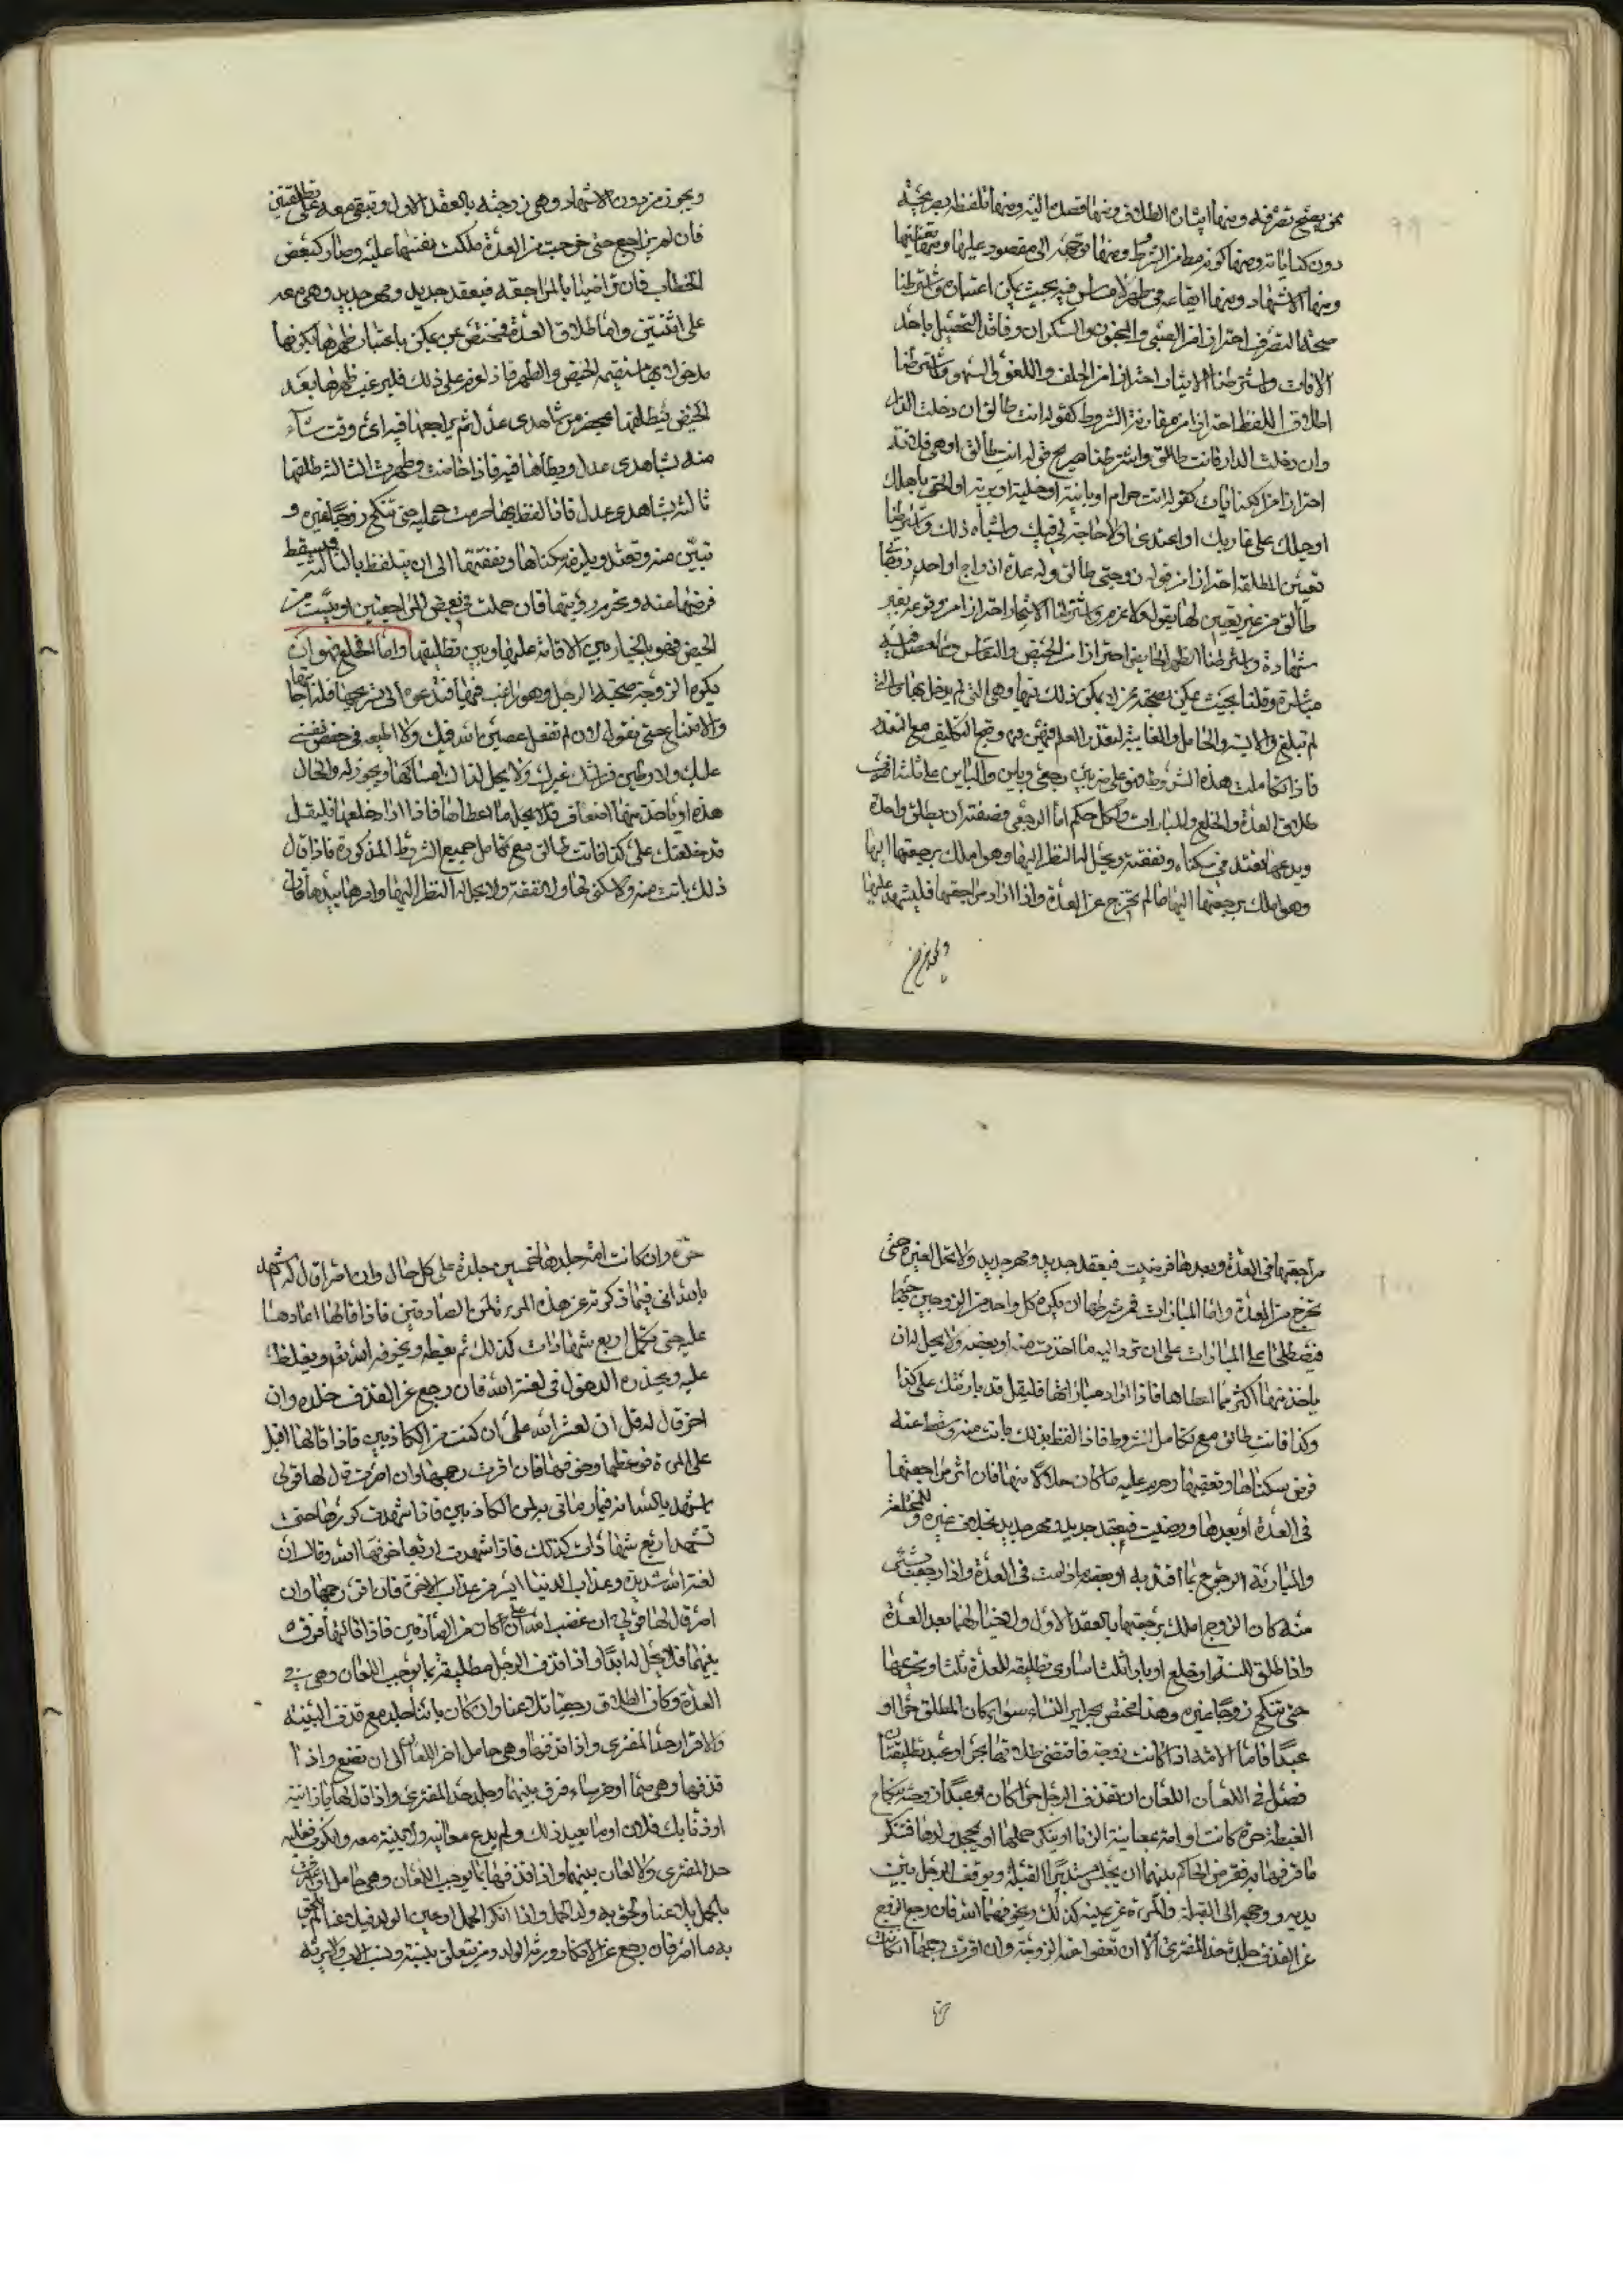 ممن يصح تصرفه ومنها ايثاره الطلاق ومنها قصده اليه ومنها تلفظه بصريحه
دون كناياته ومنها كونه مطلقا من الشرط ومنها توجهه الى مقصود عليها ومنها تعيينها
ومنها الاشهاد ومنها ايقاعه في طهر لا مساس فيه بحيث يمكن اعتباره واشترطنا
صحة التصرف احترازا من الصبي والمجنون والسكران وفاقد التحصيل باحد
الافات واشترطنا الايثار احترازا من الحلف واللغو والسهو واشترطنا
اطلاق اللفظ احترازا من مقارنة الشروط كقوله انت طالق ان دخلت الدار
وان دخلت الدار فانت طالق واشترطنا صريح قوله انت طالق او هي فلانة
احترازا من الكنايات كقوله انت حرام او باينة او خلية او برية او الحقي باهلك
او حبلك على غاربك او اعتدي او لا حاجة لي فيك واشباه ذلك واشترطنا
تعيين المطلقة احترازا من قوله زوجتي طالق وله عدة ازواج او احد زوجاتي
طالق من غير تعيين لها بقول ولا عزم واشترطنا الاشهاد احترازا من وقوعه بغير
شهادة واشترطنا الطهر الخالص احترازا من الحيض والنفاس وما حصل فيه
مباشرة وقلنا بحيث يمكن صحته ممن لا يمكن ذلك فيها وهي التي لم يدخل بها والتي
لم تبلغ والايسة والحامل والغايبة لتعذر العلم فيهن وقبح التكليف مع التعذر
فاذا تكاملت هذه الشروط فهو على ضربين رجعي وباين والباين على ثلثة اضرب
طلاق العدة والخلع والمبارات ولكل حكم اما الرجعي فصفته ان يطلق واحدة
ويدعها تعتد في سكناه ونفقته ويحل له النظر اليها وهو املك برجعتها اليها
وهو املك برجعتها اليها ما لم تخرج عن العدة واذا اراد مراجعتها فليشهد عليها
ويجوز من دون الاشهاد وهي زوجته بالعقد الاول وتبقى معه على تطليقتين
فان لم يراجع حتى خرجت من العدة ملكت نفسها عليه وصار كبعض
الخطاب فان تراضيا بالمراجعة فبعقد جديد ومهر جديد وهي معه
على اثنتين واما طلاق العدة فمختص عن يمكن باعتبار طهرها بكونها
مدخولا بها مستقيمة الحيض والطهر فاذا عزم على ذلك فليرغب طهرها بعد
الحيض فيطلقها بمحضر من شاهدي عدل ثم يراجعها فيه اي وقت شاء
منه بشاهدي عدل ويطأها فيه فاذا حاضت وطهرت الثالثة طلقها
ثالثة بشاهدي عدل فاذا لفظ بها حرمت عليه حتى تنكح زوجا غيره و
تبين منه وتعتد ويلزمه سكناها ونفقتها الى ان يتلفظ بالثالثة فيسقط
فرضهما عنه وتحرم رؤيتها فان حملت في بعض المراجعتين او يئست من
الحيض فهو بالخيار بين الاقامة عليها وبين تطليقها واما الخلع فهو ان
تكره الزوجة صحبة الرجل وهو راغب فيها فتدعوه الى تسريحها فلا اجابتها
والامتناع حتى تقول له لان لم تفعل لاعصين الله فيك ولا اطيعه في حفظ نفسي
عليك ولاوطين فراشك غيرك ولا يحل له اذا ذاك امساكها ويجوز له والحال
هذه ان ياخذ منها اضعاف ما اعطاها فاذا اراد خلعها فليقل
قد خلعتك على كذا فانت طالق مع تكامل جميع الشروط المذكورة فاذا قال
ذلك بانت منه ولا سكنى لها ولا نفقة ولا يحل له النظر اليها وامرها بيدها فان
مراجعتها في العدة وبعدها فرضيت فبعقد جديد ومهر جديد ولا تحل لغيره حتى
تخرج من العدة واما المبارات فمن شرطها ان يكره كل واحد من الزوجين صاحبه
فيصطلحا على المبارات على ان ترد اليه ما اخذت منه او بعضه ولا يحل له ان
ياخذ منها اكثر مما اعطاها فاذا اراد مباراتها فليقل قد بارئتك على كذا
وكذا فانت طالق مع تكامل الشروط فاذا لفظ بذلك بانت منه وسقط عنه
فرض سكناها ونفقتها وحرم عليه ما كان حلالا منها فان اثر مراجعتها
في العدة او بعدها ورضيت فبعقد جديد ومهر جديد وللمختلعة
والمبارية الرجوع بما افتدت به او بعضه ما دامت في العدة واذا رجعت بشيء
منه كان الزوج املك برجعتها بالعقد الاول ولا خيار لها بعد العدة
واذا طلق للسنة او خلع او بارا ثلثا ساوى تطليقه للعدة ثلثا وتحريمها
حتى تنكح زوجا غيره وهذا مختص بحراير النساء سواء كان المطلق حرا او
عبدا فاما الامة اذا كانت زوجة فاقتضى طلاقها بحر او عبد تطليقتان
فصل في اللعان اللعان ان يقذف الرجل حرا كان او عبدا زوجته بنكاح
الغبطة حرة كانت او امة بمعاينة الزنا او ينكر حملها او يجحد ولدها فتنكر
ما قرفها به ففرض الحاكم بينهما ان يجلس مستدبر القبلة ويوقف الرجل بين
يديه ووجهه الى القبلة والمرءة عن يمينه كذلك ويخوفهما الله فان رجع الزوج
عن القذف جلده حد المفتري الا ان تعفوا عنه الزوجة وان اقرت رجمها ان كانت
حرة وان كانت امة جلدها خمسين جلدة على كل حال وان اصرا قال له اشهد
بالله اني فيما ذكرته عن هذه المرءة لمن الصادقين فاذا قالها اعادها
عليه حتى تكمل اربع شهادات كذلك ثم يعظه ويخوفه الله تعالى ويغلظ
عليه ويحذره الدخول في لعنة الله فان رجع عن القذف جلده وان
اصر قال له قل ان لعنة الله علي ان كنت من الكاذبين فاذا قالها اقبل
على المرءة فوعظها وخوفها فان اقرت رجمها وان اصرت قال لها قولي
اشهد بالله انه فيما رماني به لمن الكاذبين فاذا شهدت كررها حتى
تشهد اربع شهادات كذلك فاذا شهدت اربعا خوفها الله وقال ان
لعنة الله شديدة وعذاب الدنيا ايسر من عذاب الاخرة فان اقرت رجمها وان
اصرت قال لها قولي ان غضب الله علي ان كان من الصادقين فاذا قالتها فرق
بينهما فلا تحل له ابدا واذا قذف الرجل مطليقته بما يوجب اللعان وهي في
العدة وكان الطلاق رجعيا تلاعنا وان كان باينا جلد مع فقد البينة
والاقرار حد المفتري واذا قذفها وهي حامل اخر اللعان الى ان تضع واذا
قذفها وهي صماء او خرساء فرق بينهما وجلد حد المفتري واذا قال لها يا زانية
او زنا بك فلان او ما يفيد ذلك ولم يدع معاينة ولا بينة معه فعليه
حد المفتري ولا لعان بينهما واذا قذفها بما يوجب اللعان وهي حامل
بالحمل تلاعنا ولحق به ولد الحمل واذا انكر الحمل او عين الولد فتلاعنا لم يلحق
به ما اصر فان رجع عن الانكار ورثه الولد ومن يتعلق بنسبه ونسب الاب ولا يرثه